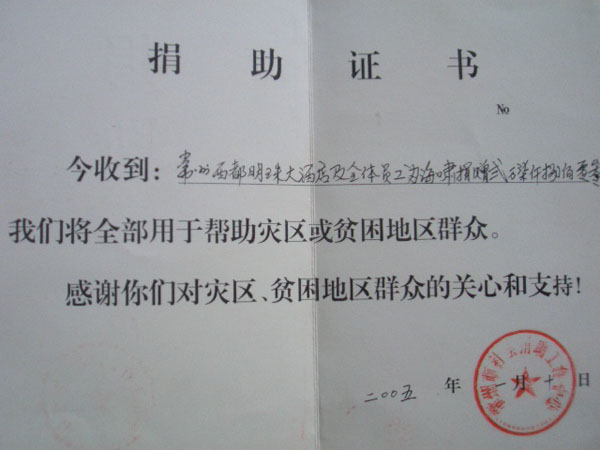 捐助证书
No
今收到:常州西都明珠大酒店及全体员工为海啸捐赠弍万柒仟捌佰
我们将全部用于帮助灾区或贫困地区群众。
感谢你们对灾区、贫困地区群众的关心和支持!
二00五年一月十日